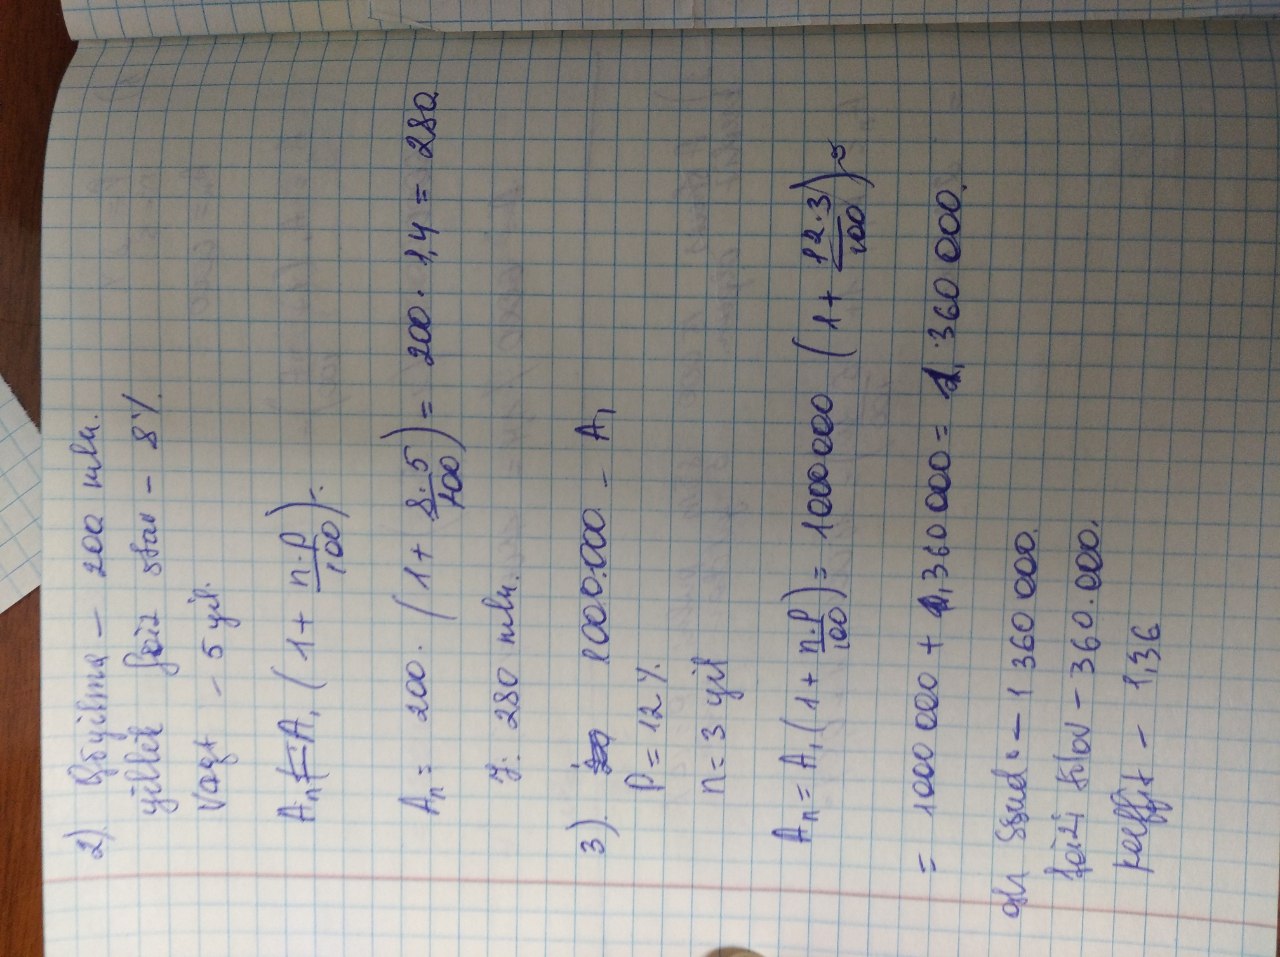 2). Qo'yilma – 200 mln.
yillik foiz stav – 8%
Vaqt – 5 yil.
Aₙ = A₁ (1 + n·p/100).
Aₙ = 200 · (1 + 8·5/100) = 200 · 1,4 = 280
J: 280 mln.
3). 1000.000 – A₁
P = 12%
n = 3 yil
Aₙ = A₁ (1 + n·p/100) = 1000 000 (1 + 12·3/100) =
= 1000 000 + 360 000 = 1.360 000.
ssuda – 1 360 000.
foizi tolov – 360.000.
koeffit – 1,36